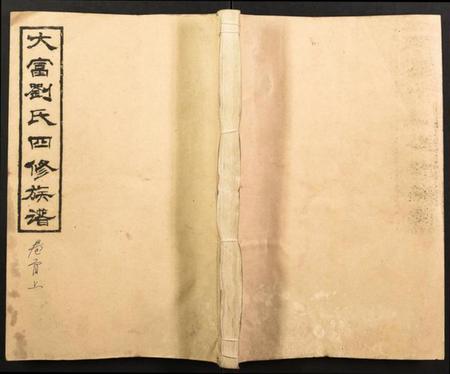 大富劉氏四修族譜
卷首上